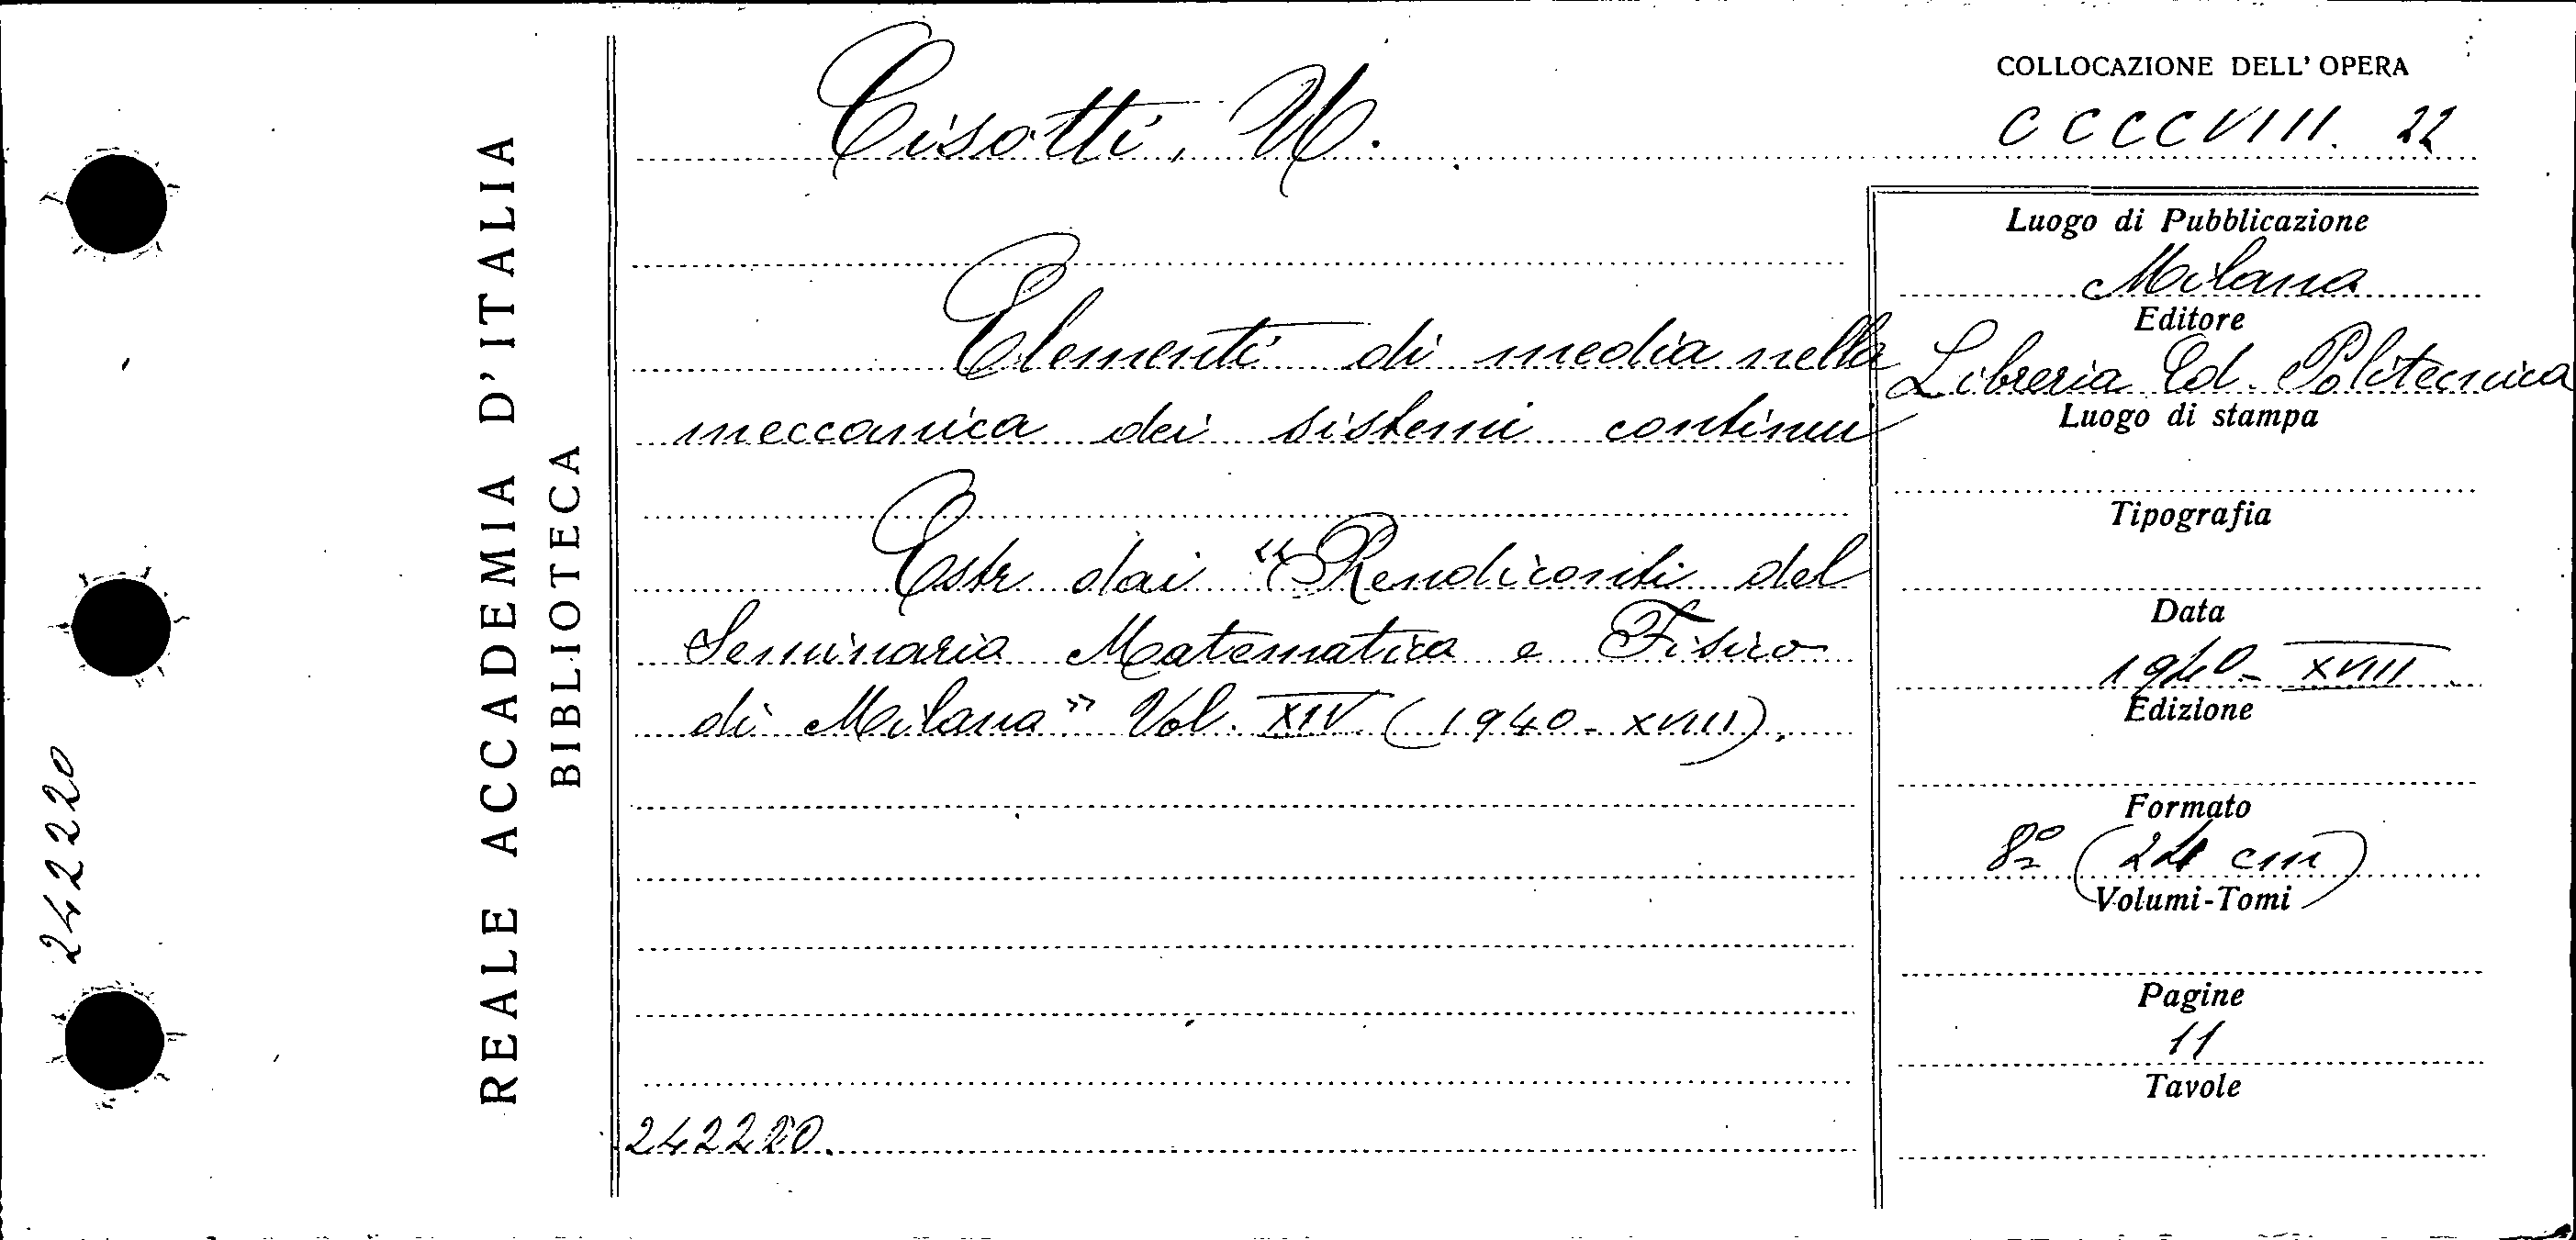 242220
REALE ACCADEMIA D'ITALIA
BIBLIOTECA
Cisotti, U.
Elementi di media nella
meccanica dei sistemi continui
Estr dai "Rendiconti del
Seminario Matematico e Fisico
di Milano" Vol. XIV (1940-XVIII).
242220.
COLLOCAZIONE DELL'OPERA
CCCCVIII. 22
Luogo di Pubblicazione
Milano
Editore
Libreria Ed. Politecnica
Luogo di stampa
Tipografia
Data
1940-XVIII
Edizione
Formato
8º (24 cm)
Volumi-Tomi
Pagine
11
Tavole